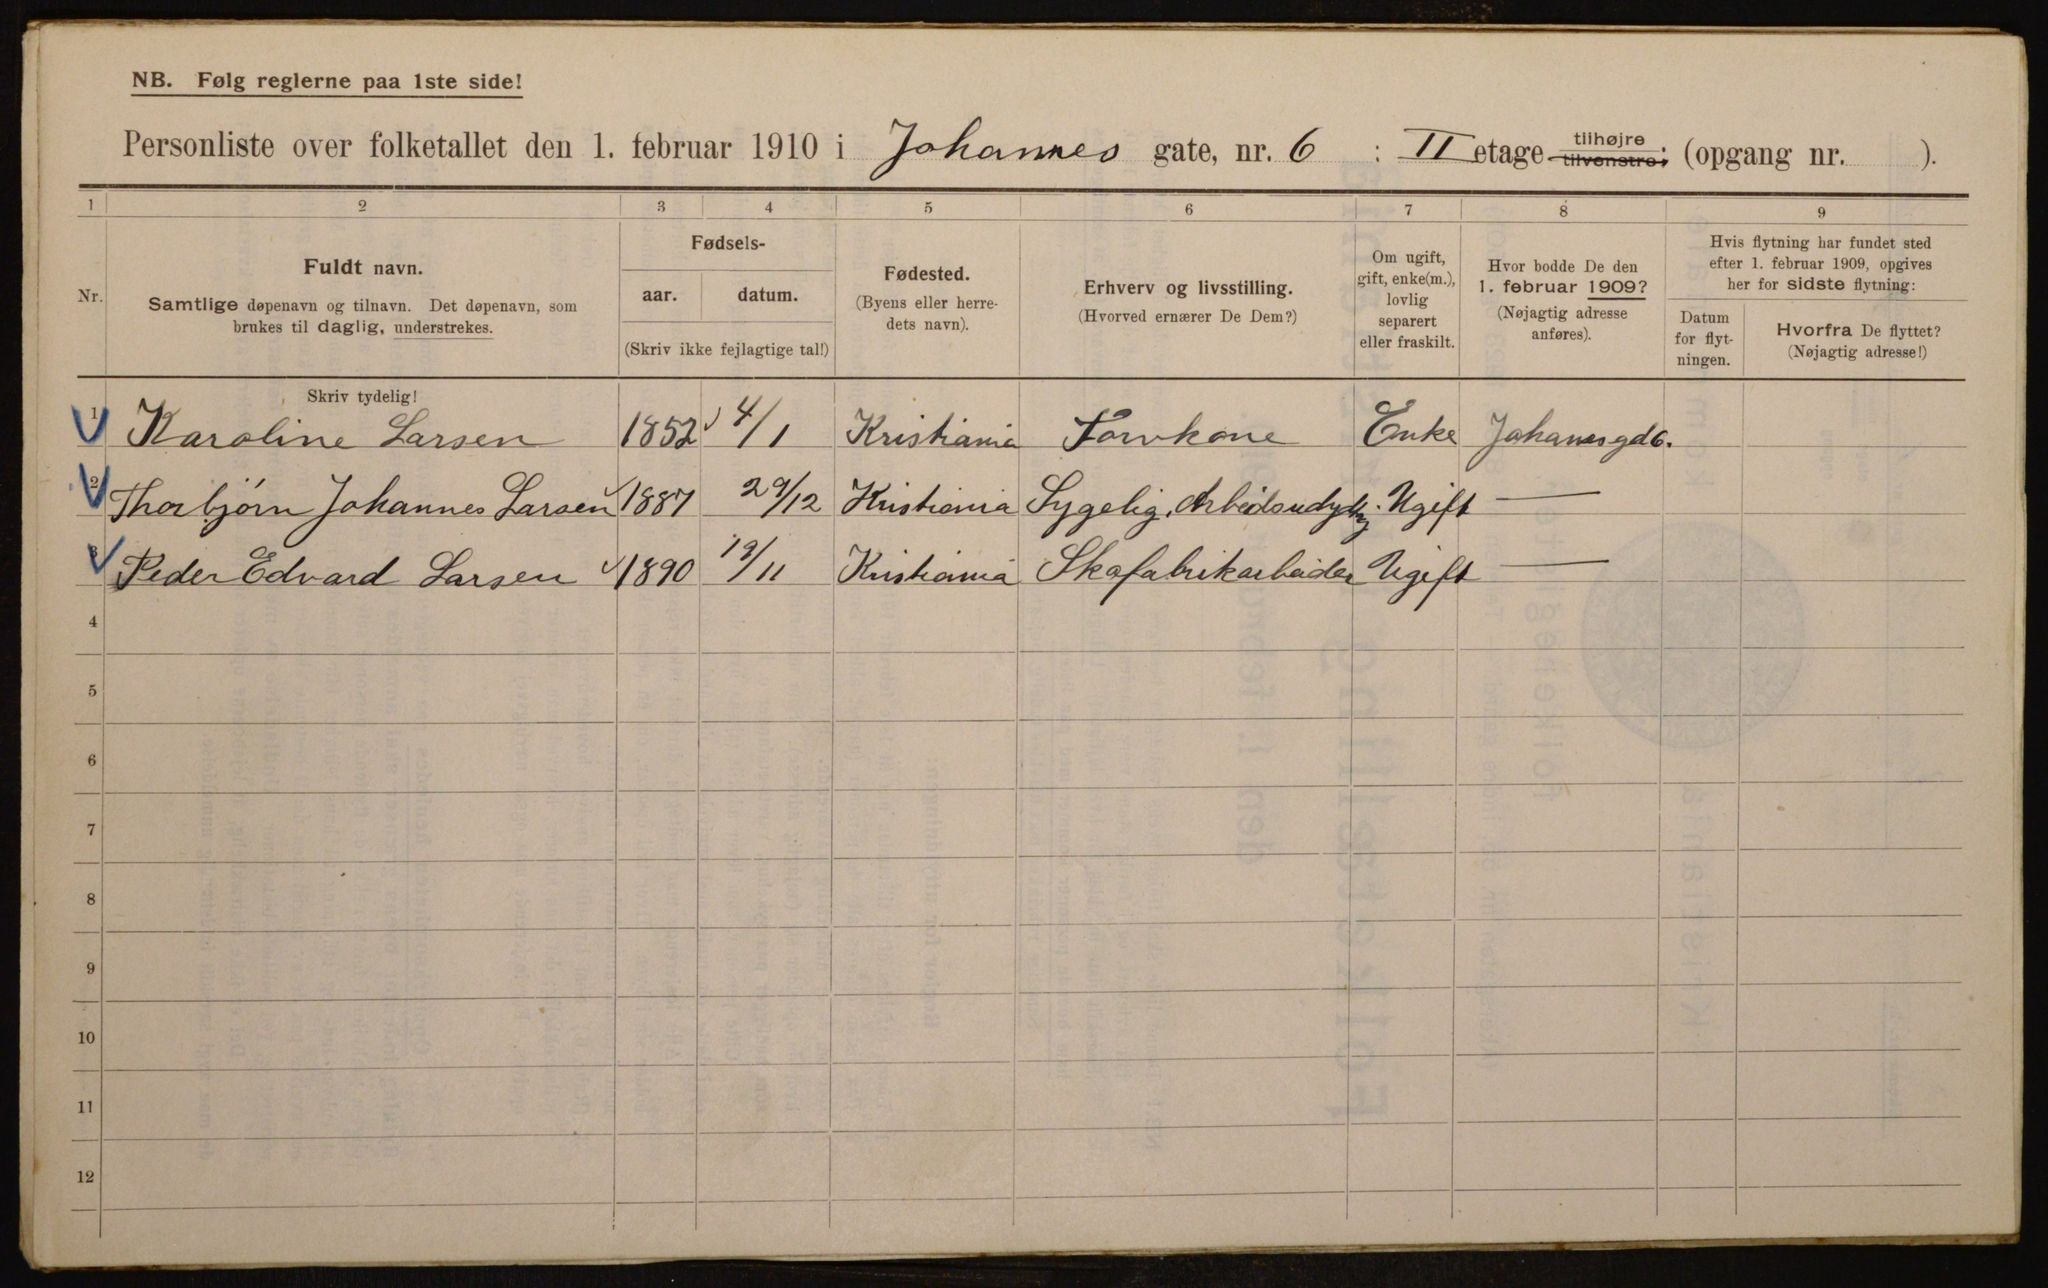 NB. Følg reglerne paa 1ste side!
Personliste over folketallet den 1. februar 1910 i Johannes gate, nr. 6 : II etage tilhøjre tilvenstre; (opgang nr. ).
1 2 3 4 5 6 7 8 9
Nr.
Fuldt navn.
Samtlige døpenavn og tilnavn. Det døpenavn, som
brukes til daglig, understrekes.
Fødsels-
aar. datum.
(Skriv ikke fejlagtige tal!)
Fødested.
(Byens eller herre-
dets navn).
Erhverv og livsstilling.
(Hvorved ernærer De Dem?)
Om ugift,
gift, enke(m.),
lovlig
separert
eller fraskilt.
Hvor bodde De den
1. februar 1909?
(Nøjagtig adresse
anføres).
Hvis flytning har fundet sted
efter 1. februar 1909, opgives
her for sidste flytning:
Datum
for flyt-
ningen.
Hvorfra De flyttet?
(Nøjagtig adresse!)
Skriv tydelig!
1 Karoline Larsen 1852 4/1 Kristiania Torvkone Enke Johanesgd 6.
2 Thorbjørn Johannes Larsen 1887 29/12 Kristiania Sygelig, Arbeidsudygtig. Ugift —
3 Peder Edvard Larsen 1890 19/11 Kristiania Skofabrikarbeider Ugift —
4
5
6
7
8
9
10
11
12